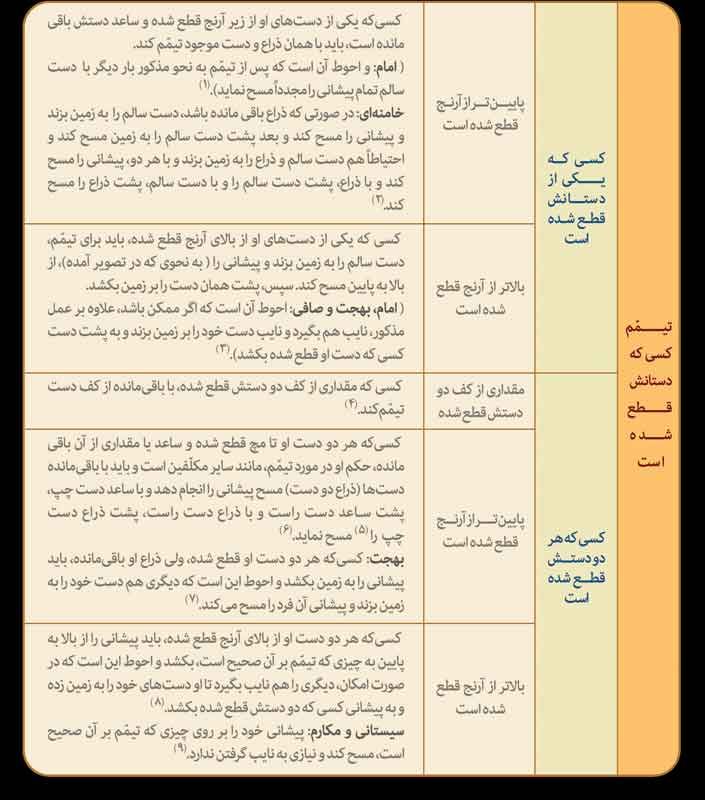 تیمّم
کسی که
دستانش
قطع
شده
است
کسی که
یکی از
دستانش
قطع شده
است
پایین‌تر از آرنج
قطع شده است
کسی‌که یکی از دست‌های او از زیر آرنج قطع شده و ساعد دستش باقی
مانده است، باید با همان ذراع و دست موجود تیمّم کند.
( امام: و احوط آن است که پس از تیمّم به نحو مذکور بار دیگر با دست
سالم تمام پیشانی را مجدداً مسح نماید).(۱)
خامنه‌ای: در صورتی که ذراع باقی مانده باشد، دست سالم را به زمین بزند
و پیشانی را مسح کند و بعد پشت دست سالم را به زمین مسح کند و
احتیاطاً هم دست سالم و ذراع را به زمین بزند و با هر دو، پیشانی را مسح
کند و با ذراع، پشت دست سالم را و با دست سالم، پشت ذراع را مسح
کند.(۲)
بالاتر از آرنج قطع
شده است
کسی که یکی از دست‌های او از بالای آرنج قطع شده، باید برای تیمّم،
دست سالم را به زمین بزند و پیشانی را ( به نحوی که در تصویر آمده)، از
بالا به پایین مسح کند. سپس، پشت همان دست را بر زمین بکشد.
( امام، بهجت و صافی: احوط آن است که اگر ممکن باشد، علاوه بر عمل
مذکور، نایب هم بگیرد و نایب دست خود را بر زمین بزند و به پشت دست
کسی که دست او قطع شده بکشد).(۳)
کسی‌که هر
دو دستش
قطع شده
است
مقداری از کف دو
دستش قطع‌شده
کسی که مقداری از کف دو دستش قطع شده، با باقی‌مانده از کف دست
تیمّم‌کند.(۴)
پایین‌تر از آرنج
قطع شده است
کسی‌که هر دو دست او تا مچ قطع شده و ساعد یا مقداری از آن باقی
مانده، حکم او در مورد تیمّم، مانند سایر مکلّفین است و باید با باقی‌مانده
دست‌ها (ذراع دو دست) مسح پیشانی را انجام دهد و با ساعد دست چپ،
پشت ساعد دست راست و با ذراع دست راست، پشت ذراع دست
چپ را (۵) مسح نماید.(۶)
بهجت: کسی‌که هر دو دست او قطع شده، ولی ذراع او باقی‌مانده، باید
پیشانی را به زمین بکشد و احوط این است که دیگری هم دست خود را به
زمین بزند و پیشانی آن فرد را مسح می‌کند.(۷)
بالاتر از آرنج قطع
شده است
کسی‌که هر دو دست او از بالای آرنج قطع شده، باید پیشانی را از بالا به
پایین به چیزی که تیمّم بر آن صحیح است، بکشد و احوط این است که در
صورت امکان، دیگری را هم نایب بگیرد تا او دست‌های خود را به زمین زده
و به پیشانی کسی که دو دستش قطع شده بکشد.(۸)
سیستانی و مکارم: پیشانی خود را بر روی چیزی که تیمّم بر آن صحیح
است، مسح کند و نیازی به نایب گرفتن ندارد.(۹)